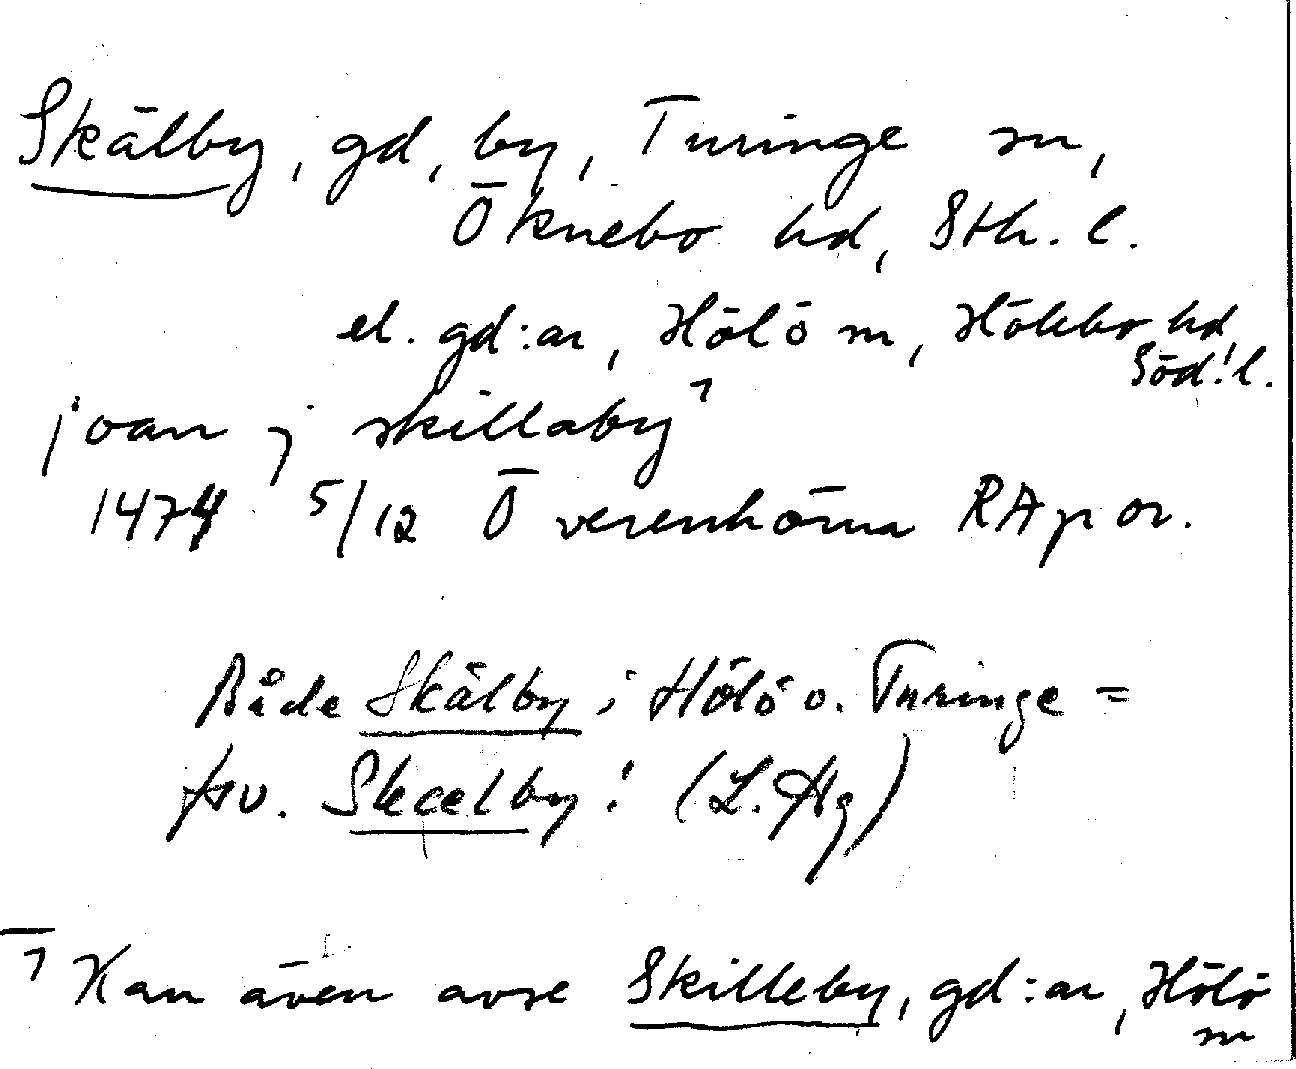 Skälby, gd, by, Turinge sn,
Öknebo hd, Sth. l.
el. gd:ar, Hölö sn, Hölebo hd,
Söd. l.
joan j skillaby ¹
1474 5/12 Överenhörna RAp or.
Både Skälby i Hölö o. Turinge =
fsv. Skælby! (L. Hg)
¹ Kan även avse Skilleby, gd:ar, Hölö
sn